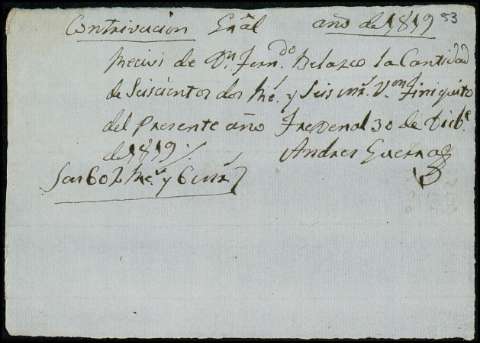 Contrivucion Grãl año de 1819 53
Recivi de Dn. Ferndo. Belasco la Cantidad
de Seiscientos dos Rs. y Seis mrs. Von. Finiquito
del Presente año Frexenal 30 de Dice.
de 1819
Andres Guerra
Son 602 Rs. y 6 mrs.